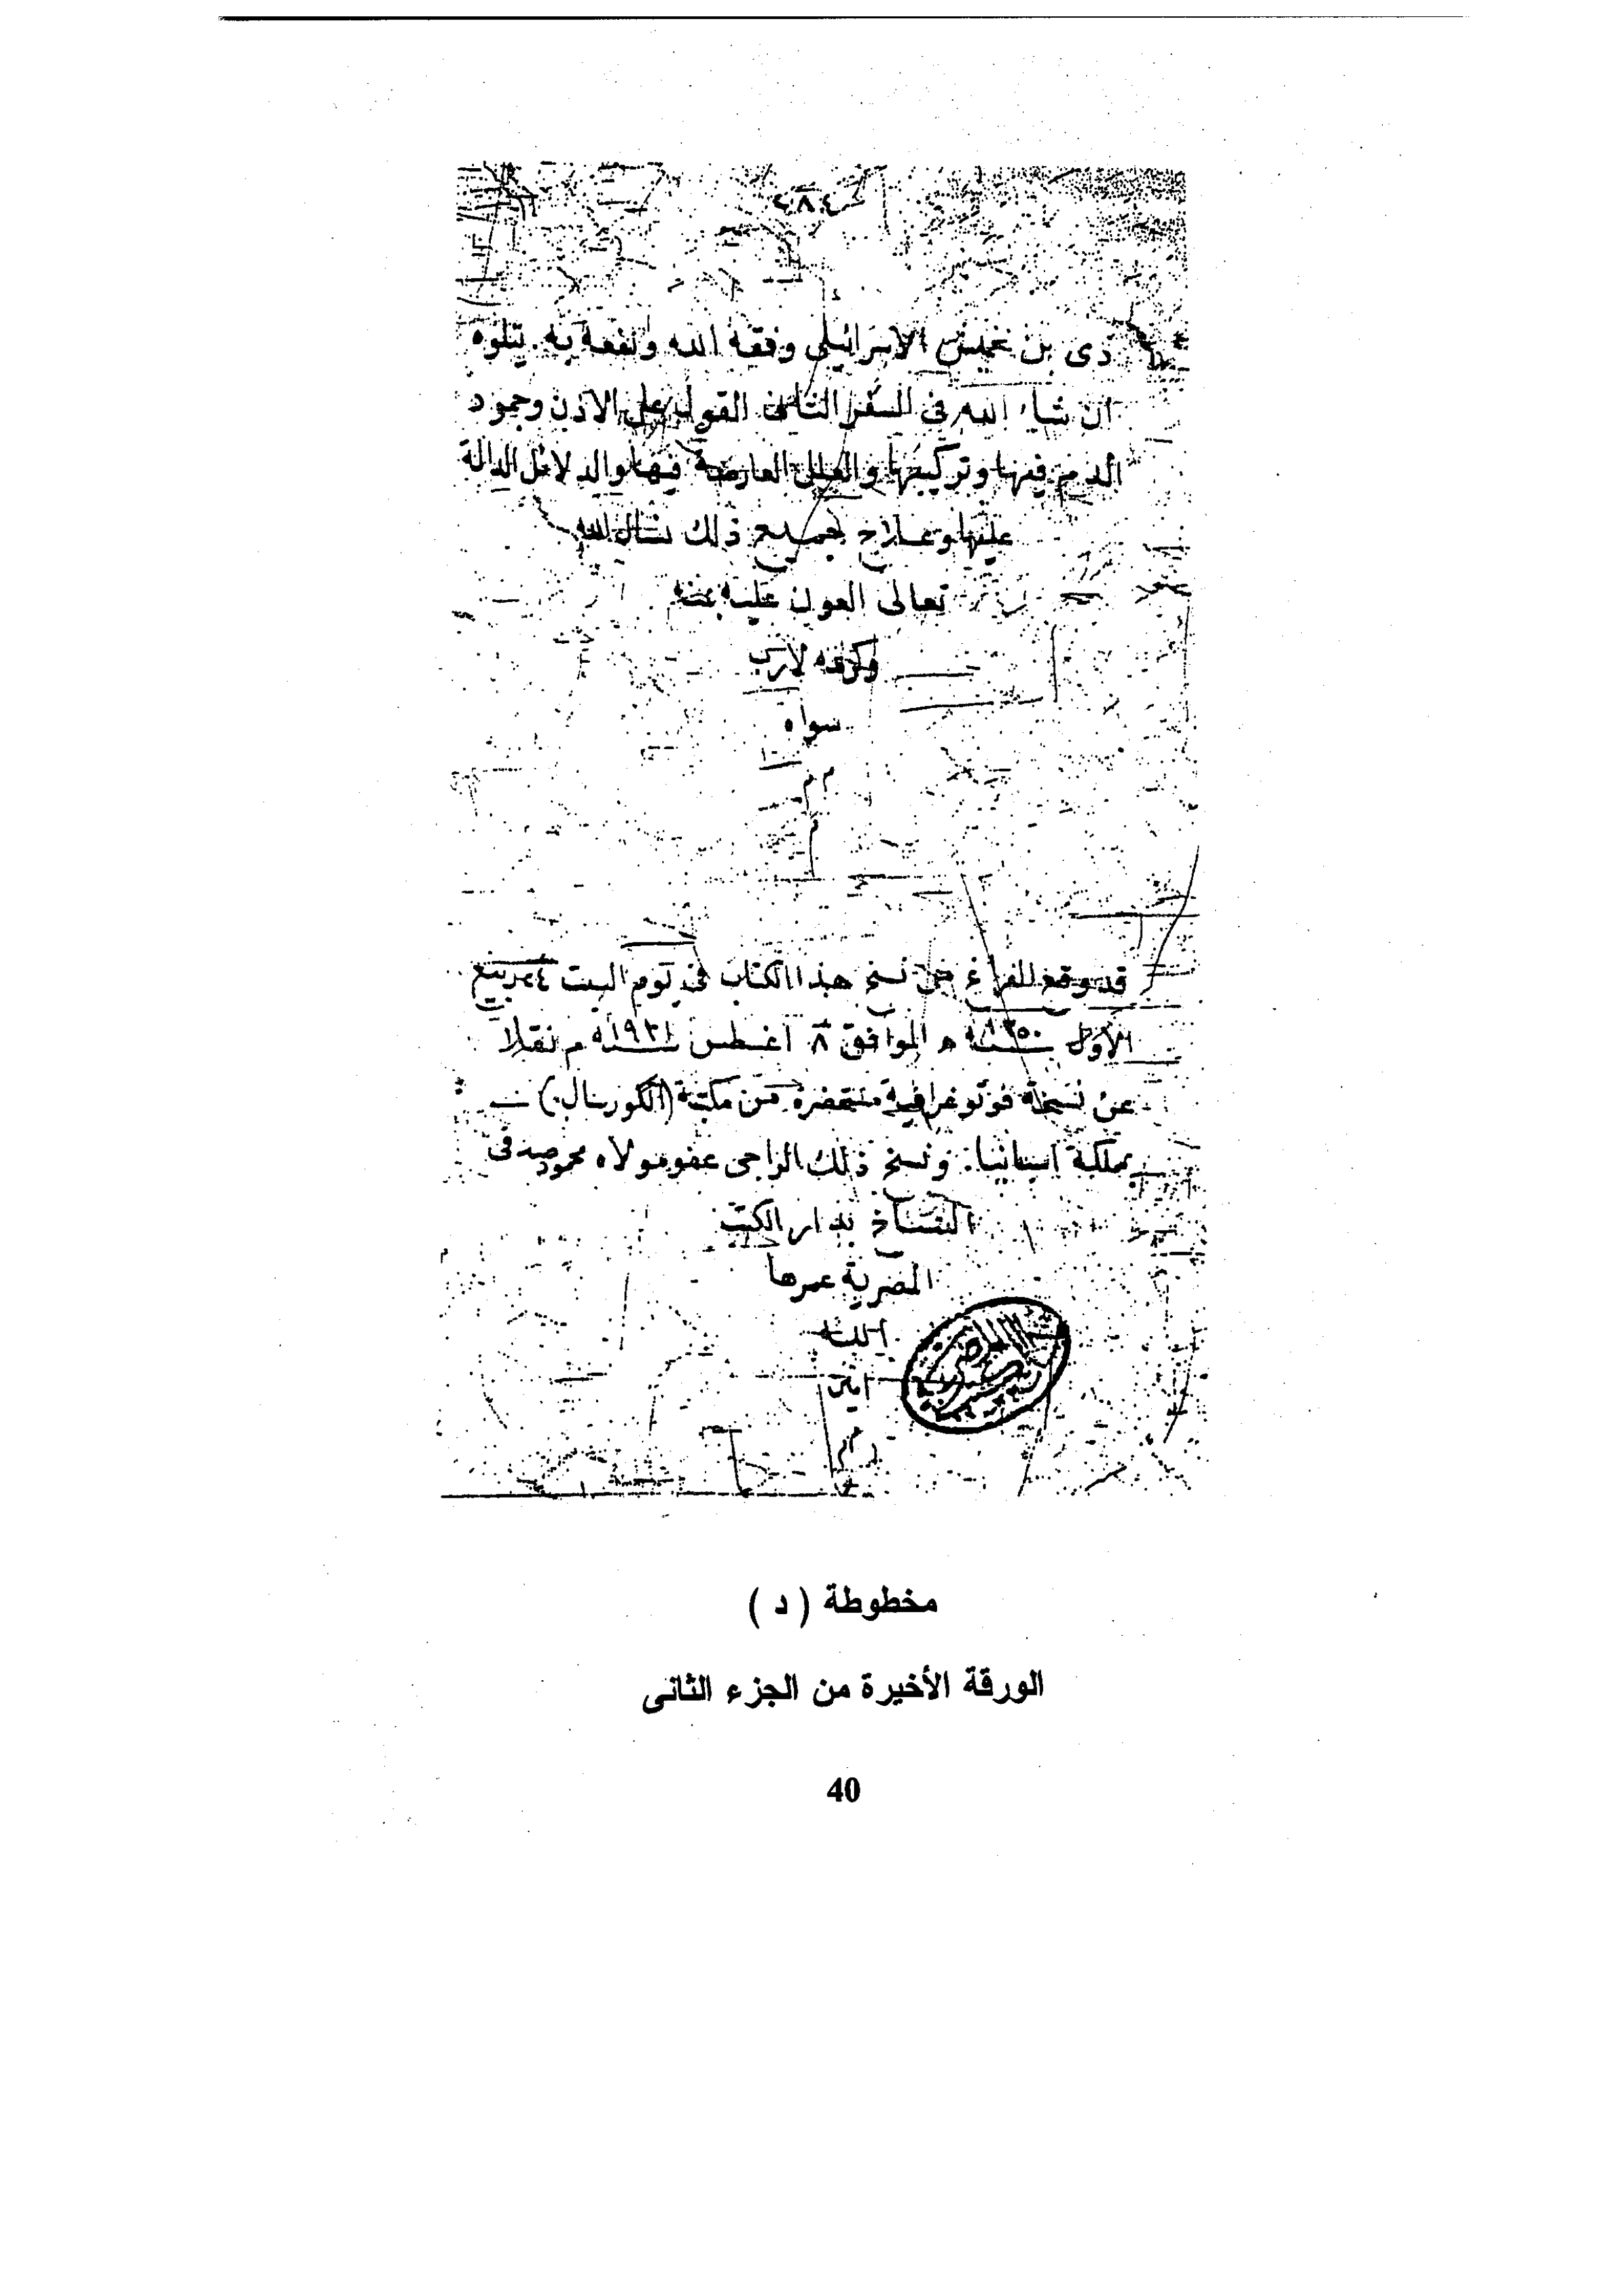 ٢٨٤
دى بن نحميش الاسرائيلى وفقه الله ونفعه به. يتلوه
ان شاء الله فى السفر الثانى القول على الاذن وجمود
الدم فيها وتركيبها والعلل العارضة فيها والدلائل الدالة
عليها وعلاج جميع ذلك نسال الله
تعالى العون عليه بمنه
وكرمه لا رب
سواه
م م
م
قد وقع الفراغ من نسخ هذا الكتاب فى يوم السبت ٢٤ ربيع
الأول سنة ١٣٥٠ ه الموافق ٨ اغسطس سنة ١٩٣١ م نقلا
عن نسخة فوتوغرافية مستحضرة من مكتبة (الكوريال)
بمملكة اسبانيا. ونسخ ذلك الراجى عفو مولاه محمود صدقى
النساخ بدار الكتب
المصرية عمرها
الله
امين
مخطوطة ( د )
الورقة الأخيرة من الجزء الثانى
40